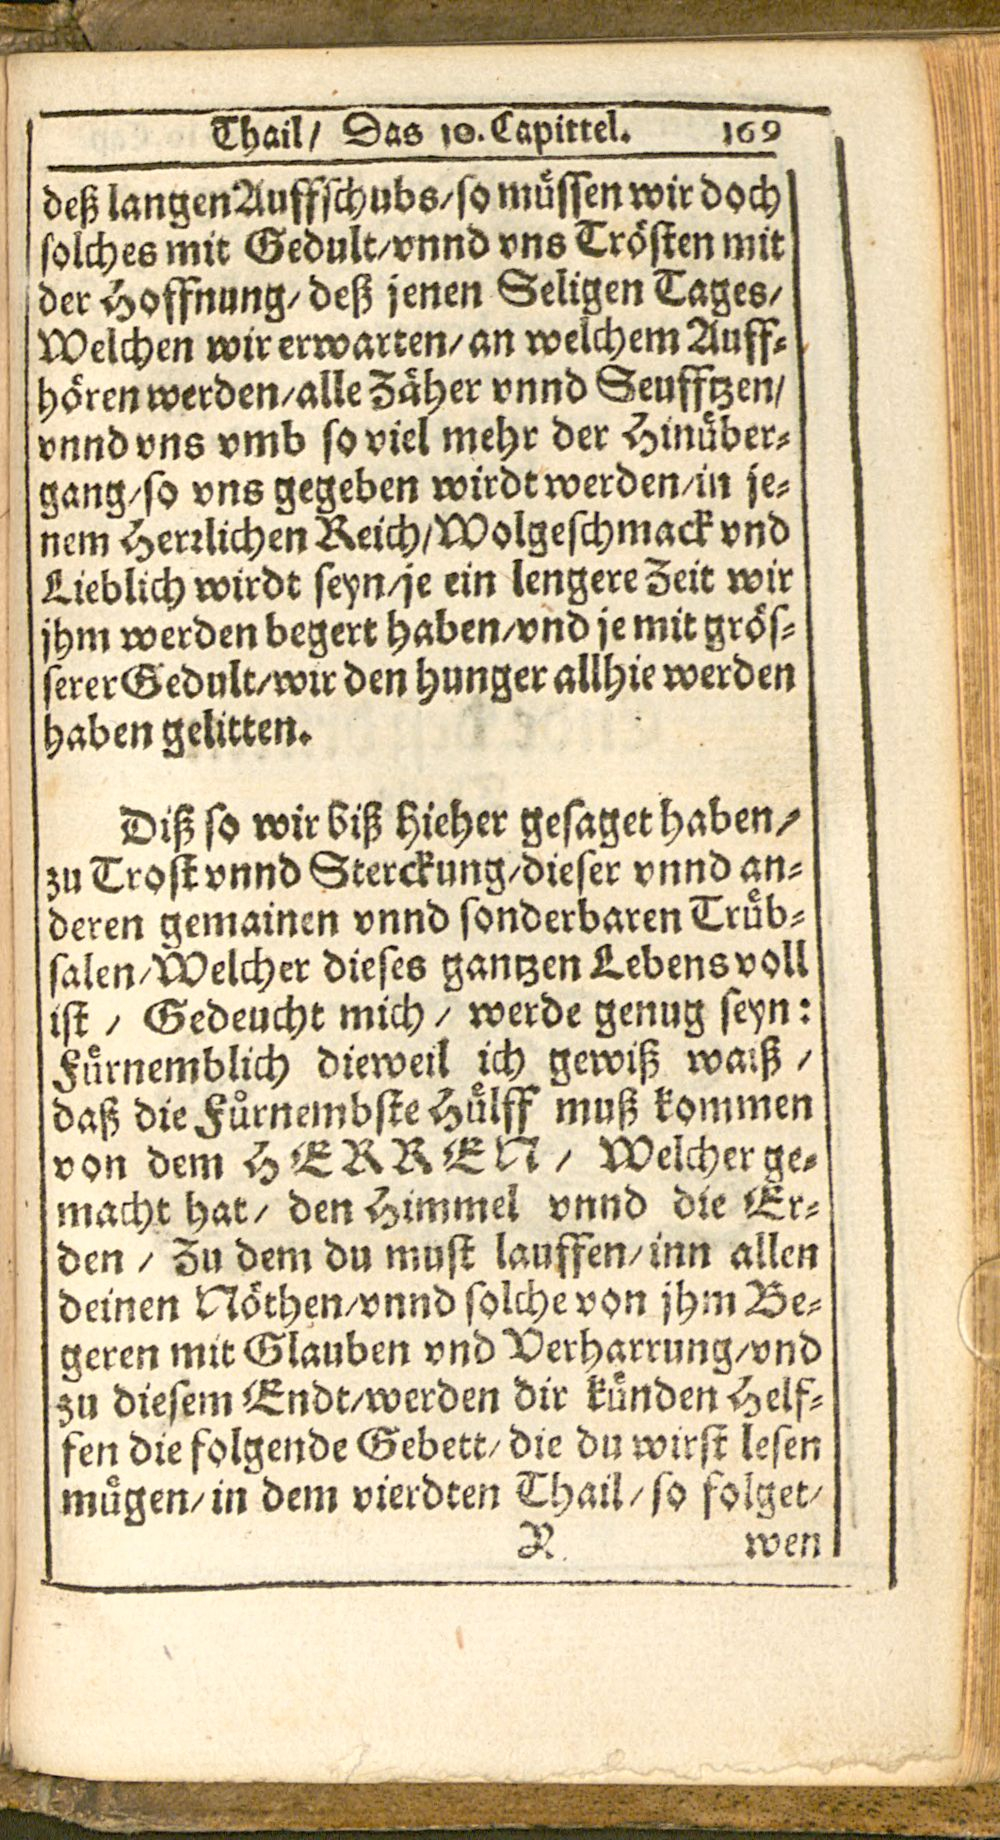 Thail/ Das 10. Capittel. 169
deß langen Auffschubs/so müssen wir doch
solches mit Gedult/vnnd vns Trösten mit
der Hoffnung/deß jenen Seligen Tages/
Welchen wir erwarten/an welchem Auff-
hören werden/alle Zäher vnnd Seufftzen/
vnnd vns vmb so viel mehr der Hinüber-
gang/so vns gegeben wirdt werden/in je-
nem Herrlichen Reich/Wolgeschmack vnd
Lieblich wirdt seyn/je ein lengere Zeit wir
jhm werden begert haben/vnd je mit grös-
serer Gedult/wir den hunger allhie werden
haben gelitten.
Diß so wir biß hieher gesaget haben/
zu Trost vnnd Sterckung/dieser vnnd an-
deren gemainen vnnd sonderbaren Trüb-
salen/Welcher dieses gantzen Lebens voll
ist / Gedeucht mich / werde genug seyn:
Fürnemblich dieweil ich gewiß waiß /
daß die Fürnembste Hülff muß kommen
von dem HERREN / Welcher ge-
macht hat/ den Himmel vnnd die Er-
den / Zu dem du must lauffen/inn allen
deinen Nöthen/vnnd solche von jhm Be-
geren mit Glauben vnd Verharrung/vnd
zu diesem Endt/werden dir künden Helf-
fen die folgende Gebett/die du wirst lesen
mügen/in dem vierdten Thail/so folget/
R wen